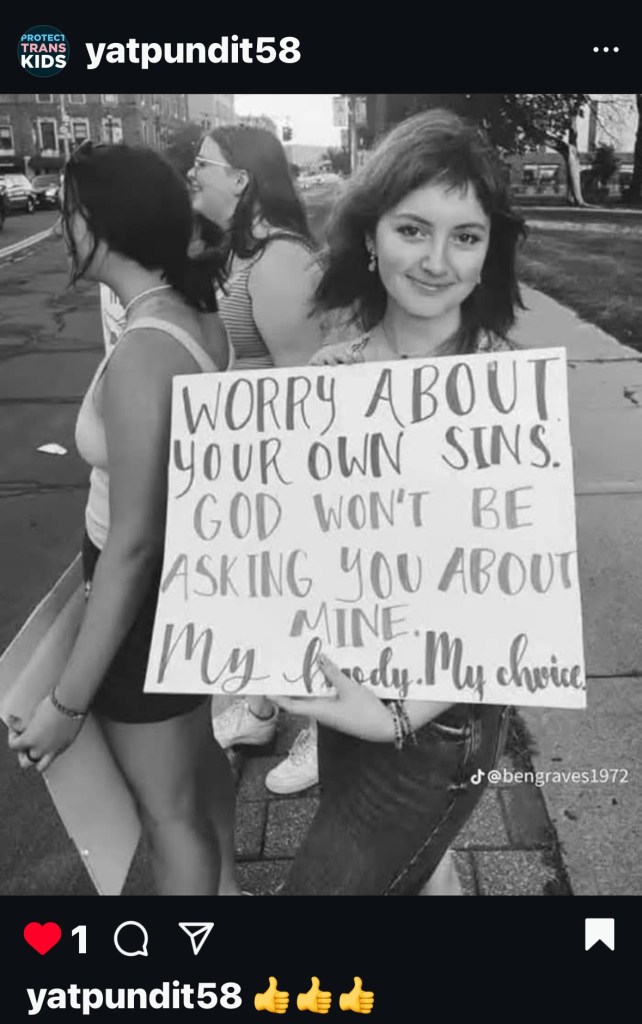 PROTECT
TRANS
KIDS
yatpundit58
WORRY ABOUT
YOUR OWN SINS.
GOD WON'T BE
ASKING YOU ABOUT
MINE.
My body. My choice.
@bengraves1972
1
yatpundit58 👍👍👍